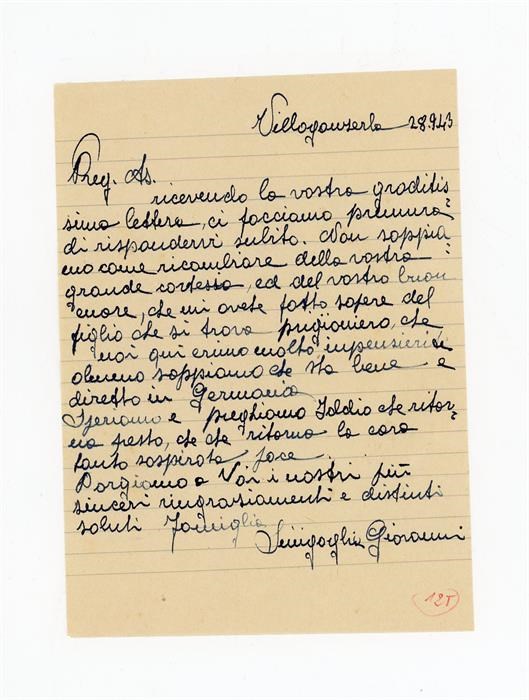 Villaganzerla 28.9.43
Preg. As.
ricevendo la vostra graditis
sima lettera, ci facciamo premura
di rispondervi subito. Non sappia
mo come ricambiare della vostra
grande cortesia, ed del vostro buon
cuore, che mi avete fatto sapere del
figlio che si trova prigioniero, che
noi qui erimo molto inpensieriti
almeno sappiamo che sta bene e
diretto in Germania
Speriamo e preghiamo Iddio che ritor-
na presto, che che ritorna la cara
tanto sospirata pace.
Porgiamo a Voi i nostri più
sinceri ringraziamenti e distinti
saluti Famiglia
Giovanni
12T